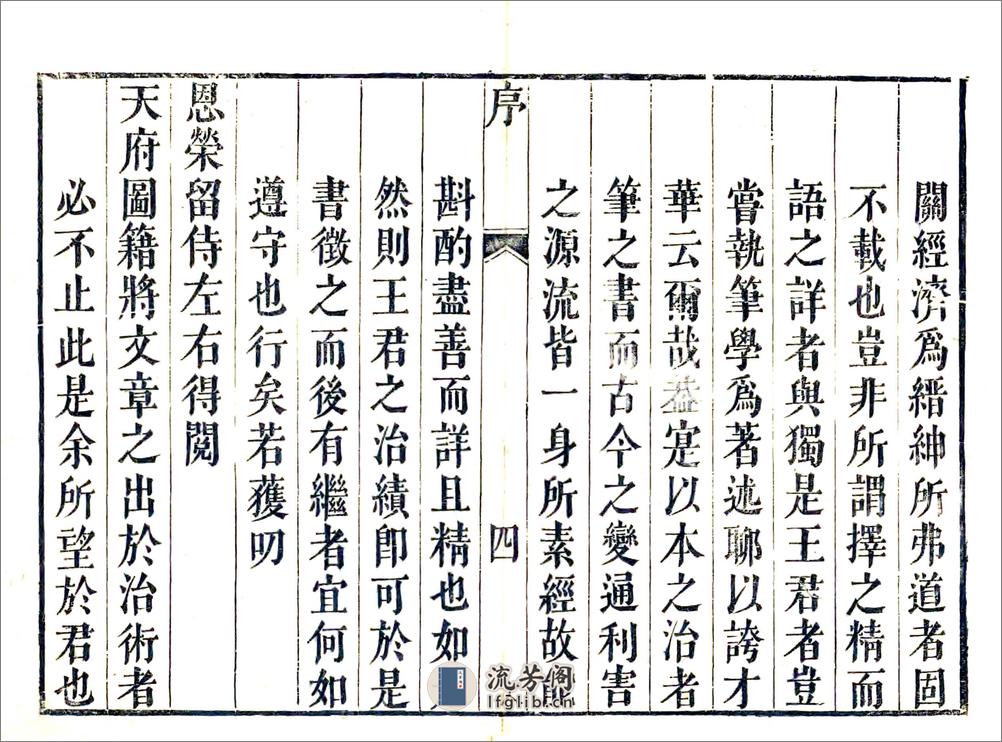 關經濟爲縉紳所弗道者固
不載也豈非所謂擇之精而
語之詳者與獨是王君者豈
嘗執筆學爲著述聊以誇才
華云爾哉葢寔以本之治者
筆之書而古今之變通利害
之源流皆一身所素經故
序 四
斟酌盡善而詳且精也如
然則王君之治績即可於是
書徵之而後有繼者宜何如
遵守也行矣若獲叨
恩榮留侍左右得閱
天府圖籍將文章之出於治術者
必不止此是余所望於君也
流芳阁
lfglib.cn